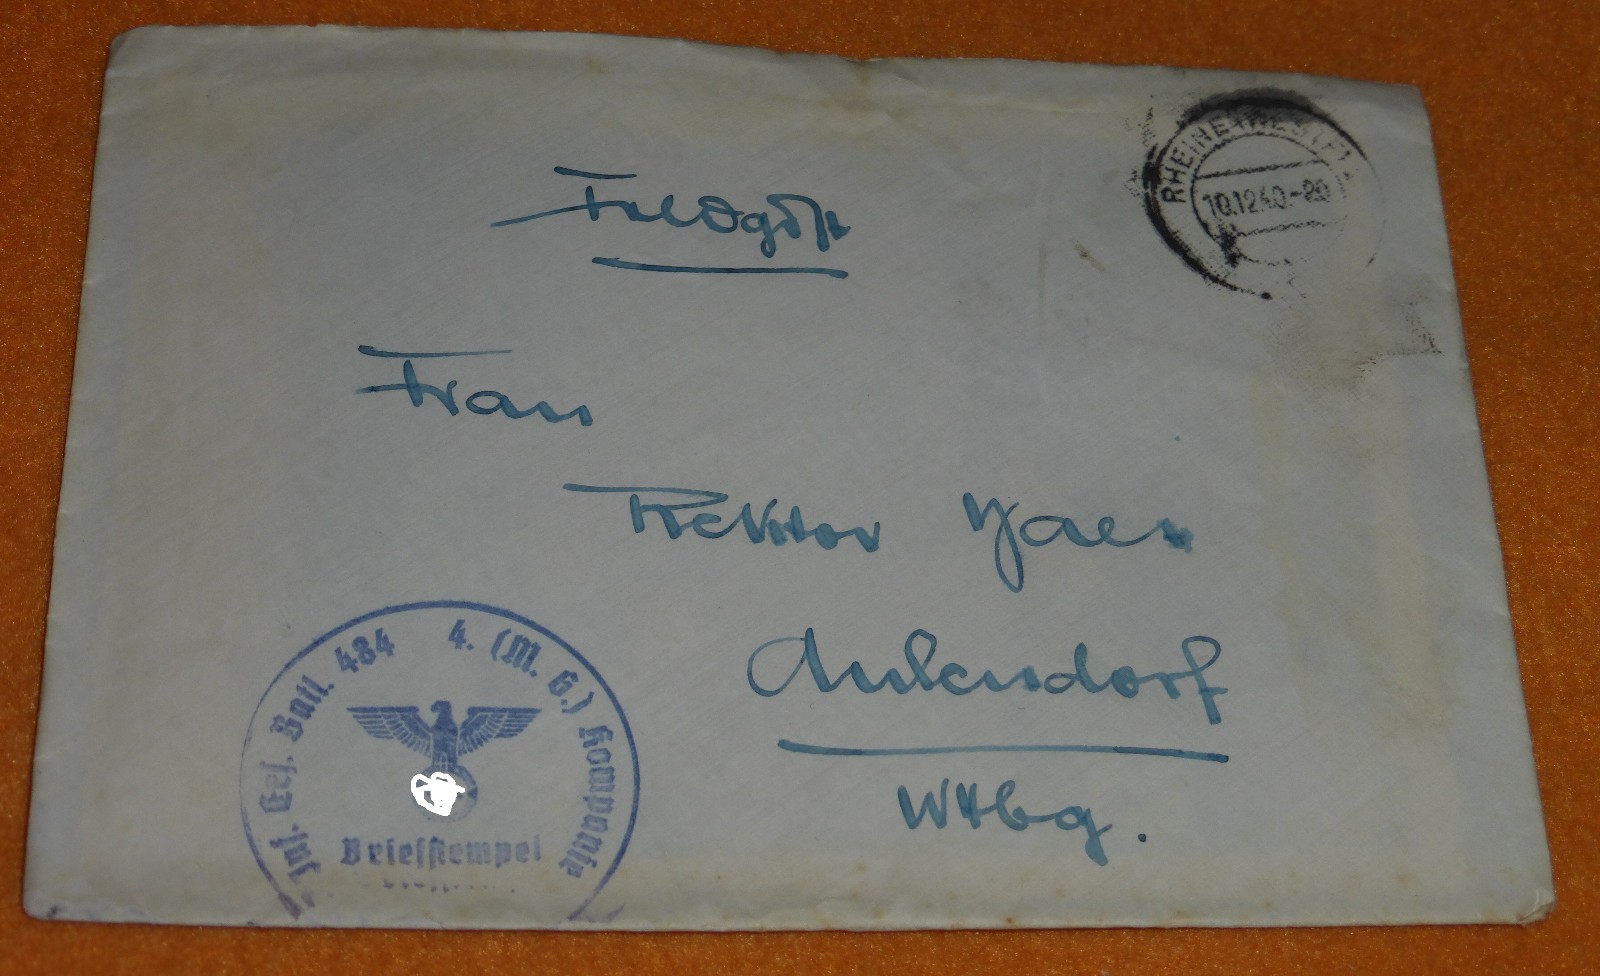 RHEINE (WESTF)
10.12.40.-20
Feldpost
Frau
Rektor
Aulendorf
Wttbg.
Inf. Ers. Batl. 484 4. (M. G.) Kompanie
Briefstempel